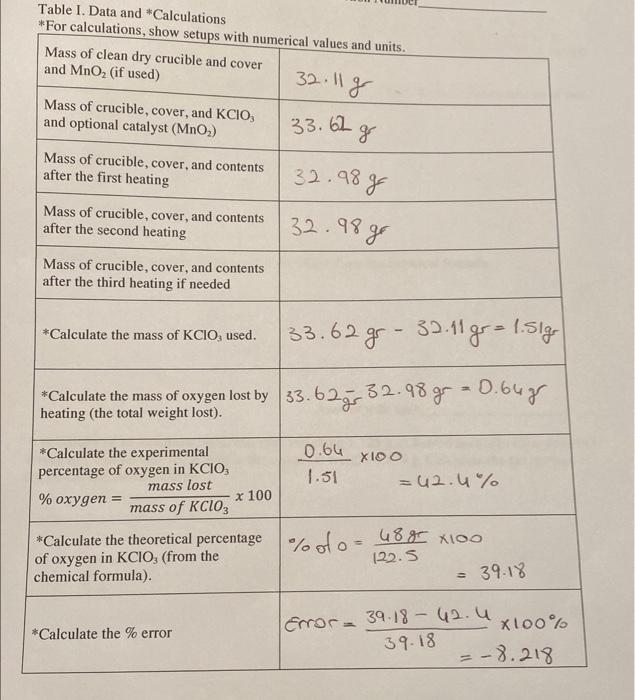 Table I. Data and *Calculations
*For calculations, show setups with numerical values and units.
Mass of clean dry crucible and cover
and MnO₂ (if used)
32.11 gr
Mass of crucible, cover, and KClO₃
and optional catalyst (MnO₂)
33.62 gr
Mass of crucible, cover, and contents
after the first heating
32.98 gr
Mass of crucible, cover, and contents
after the second heating
32.98 gr
Mass of crucible, cover, and contents
after the third heating if needed
*Calculate the mass of KClO₃ used.
33.62 gr - 32.11 gr = 1.51 gr
*Calculate the mass of oxygen lost by
heating (the total weight lost).
33.62 gr - 32.98 gr = 0.64 gr
*Calculate the experimental
percentage of oxygen in KClO₃
% oxygen = mass lost / mass of KClO₃ x 100
0.64 / 1.51 x100
= 42.4%
*Calculate the theoretical percentage
of oxygen in KClO₃ (from the
chemical formula).
% of O = 48 gr / 122.5 x100
= 39.18
*Calculate the % error
Error = 39.18 - 42.4 / 39.18 x100%
= -8.218